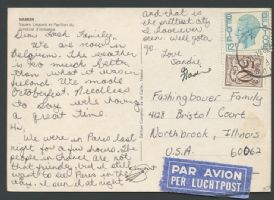 NAMUR
Square Léopold et Pavillon du
Dear Fash Family,
We are now in
Belgium. The weather
is so much better
than what it was in
We made
Octoberfest. Needless
to say we's having
a great time.
Hi,
We were in Paris last
night for a few hours. The
people in France are not
that friendly, but I still
want to see Paris in the
day. I seen it at night
and that is
the prettiest city
I ever
Well gotta
go.
Love
Sandy
Fashingbauer Family
4128 Bristol Court
Northbrook, Illinois
U.S.A. 60062
PAR AVION
PER LUCHTPOST